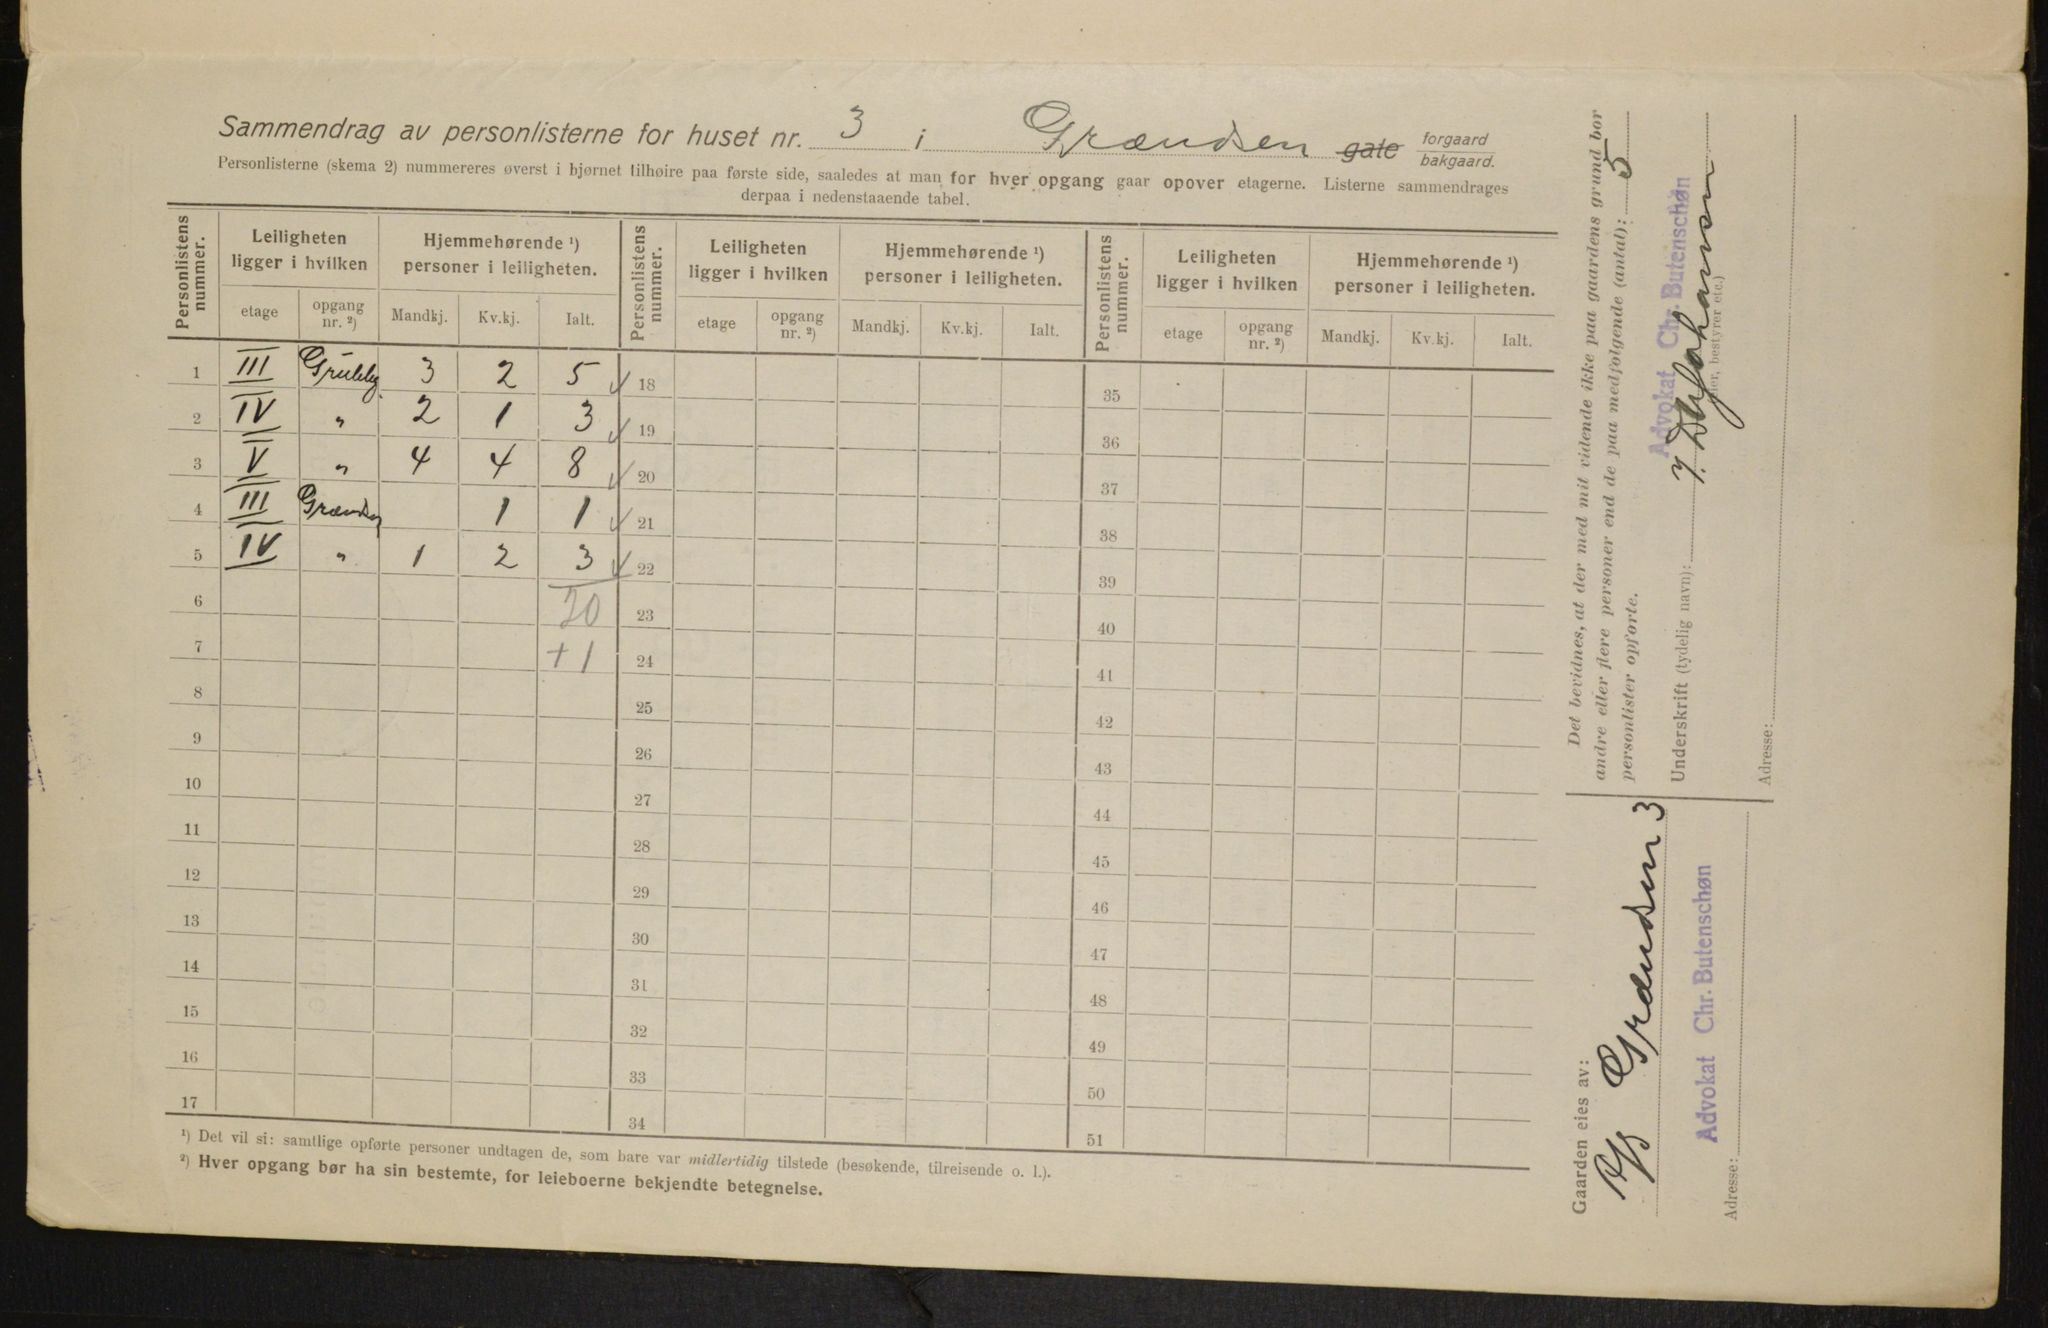 Sammendrag av personlisterne for huset nr. 3 i Grændsen gate forgaard bakgaard.
Personlisterne (skema 2) nummereres øverst i bjørnet tilhøire paa første side, saaledes at man for hver opgang gaar opover etagerne. Listerne sammendrages
derpaa i nedenstaaende tabel.
Personlistens nummer. Leiligheten ligger i hvilken Hjemmehørende ¹) personer i leiligheten. Personlistens nummer. Leiligheten ligger i hvilken Hjemmehørende ¹) personer i leiligheten. Personlistens nummer. Leiligheten ligger i hvilken Hjemmehørende ¹) personer i leiligheten.
etage opgang nr. ²) Mandkj. Kv.kj. Ialt. etage opgang nr. ²) Mandkj. Kv.kj. Ialt. etage opgang nr. ²) Mandkj. Kv.kj. Ialt.
1 III 3 2 5 18 35
2 IV „ 2 1 3 19 36
3 V „ 4 4 8 20 37
4 III 1 1 21 38
5 IV „ 1 2 3 22 39
6 20 23 40
7 +1 24 41
8 25 42
9 26 43
10 27 44
11 28 45
12 29 46
13 30 47
14 31 48
15 32 49
16 33 50
17 34 51
¹) Det vil si: samtlige opførte personer undtagen de, som bare var midlertidig tilstede (besøkende, tilreisende o. l.).
²) Hver opgang bør ha sin bestemte, for leieboerne bekjendte betegnelse.
Det bevidnes, at der med mit vidende ikke paa gaardens grund bor
andre eller flere personer end de paa medfølgende (antal): 5
personlister opførte.
Advokat Chr. Butenschøn
Underskrift (tydelig navn):
bestyrer etc.)
Adresse:
Gaarden eies av:
Grændsen 3
Advokat Chr. Butenschøn
Adresse: